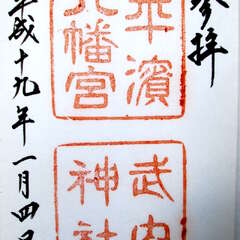 參拝
平濱
八幡宮
武内
神社
平成十九年一月四日